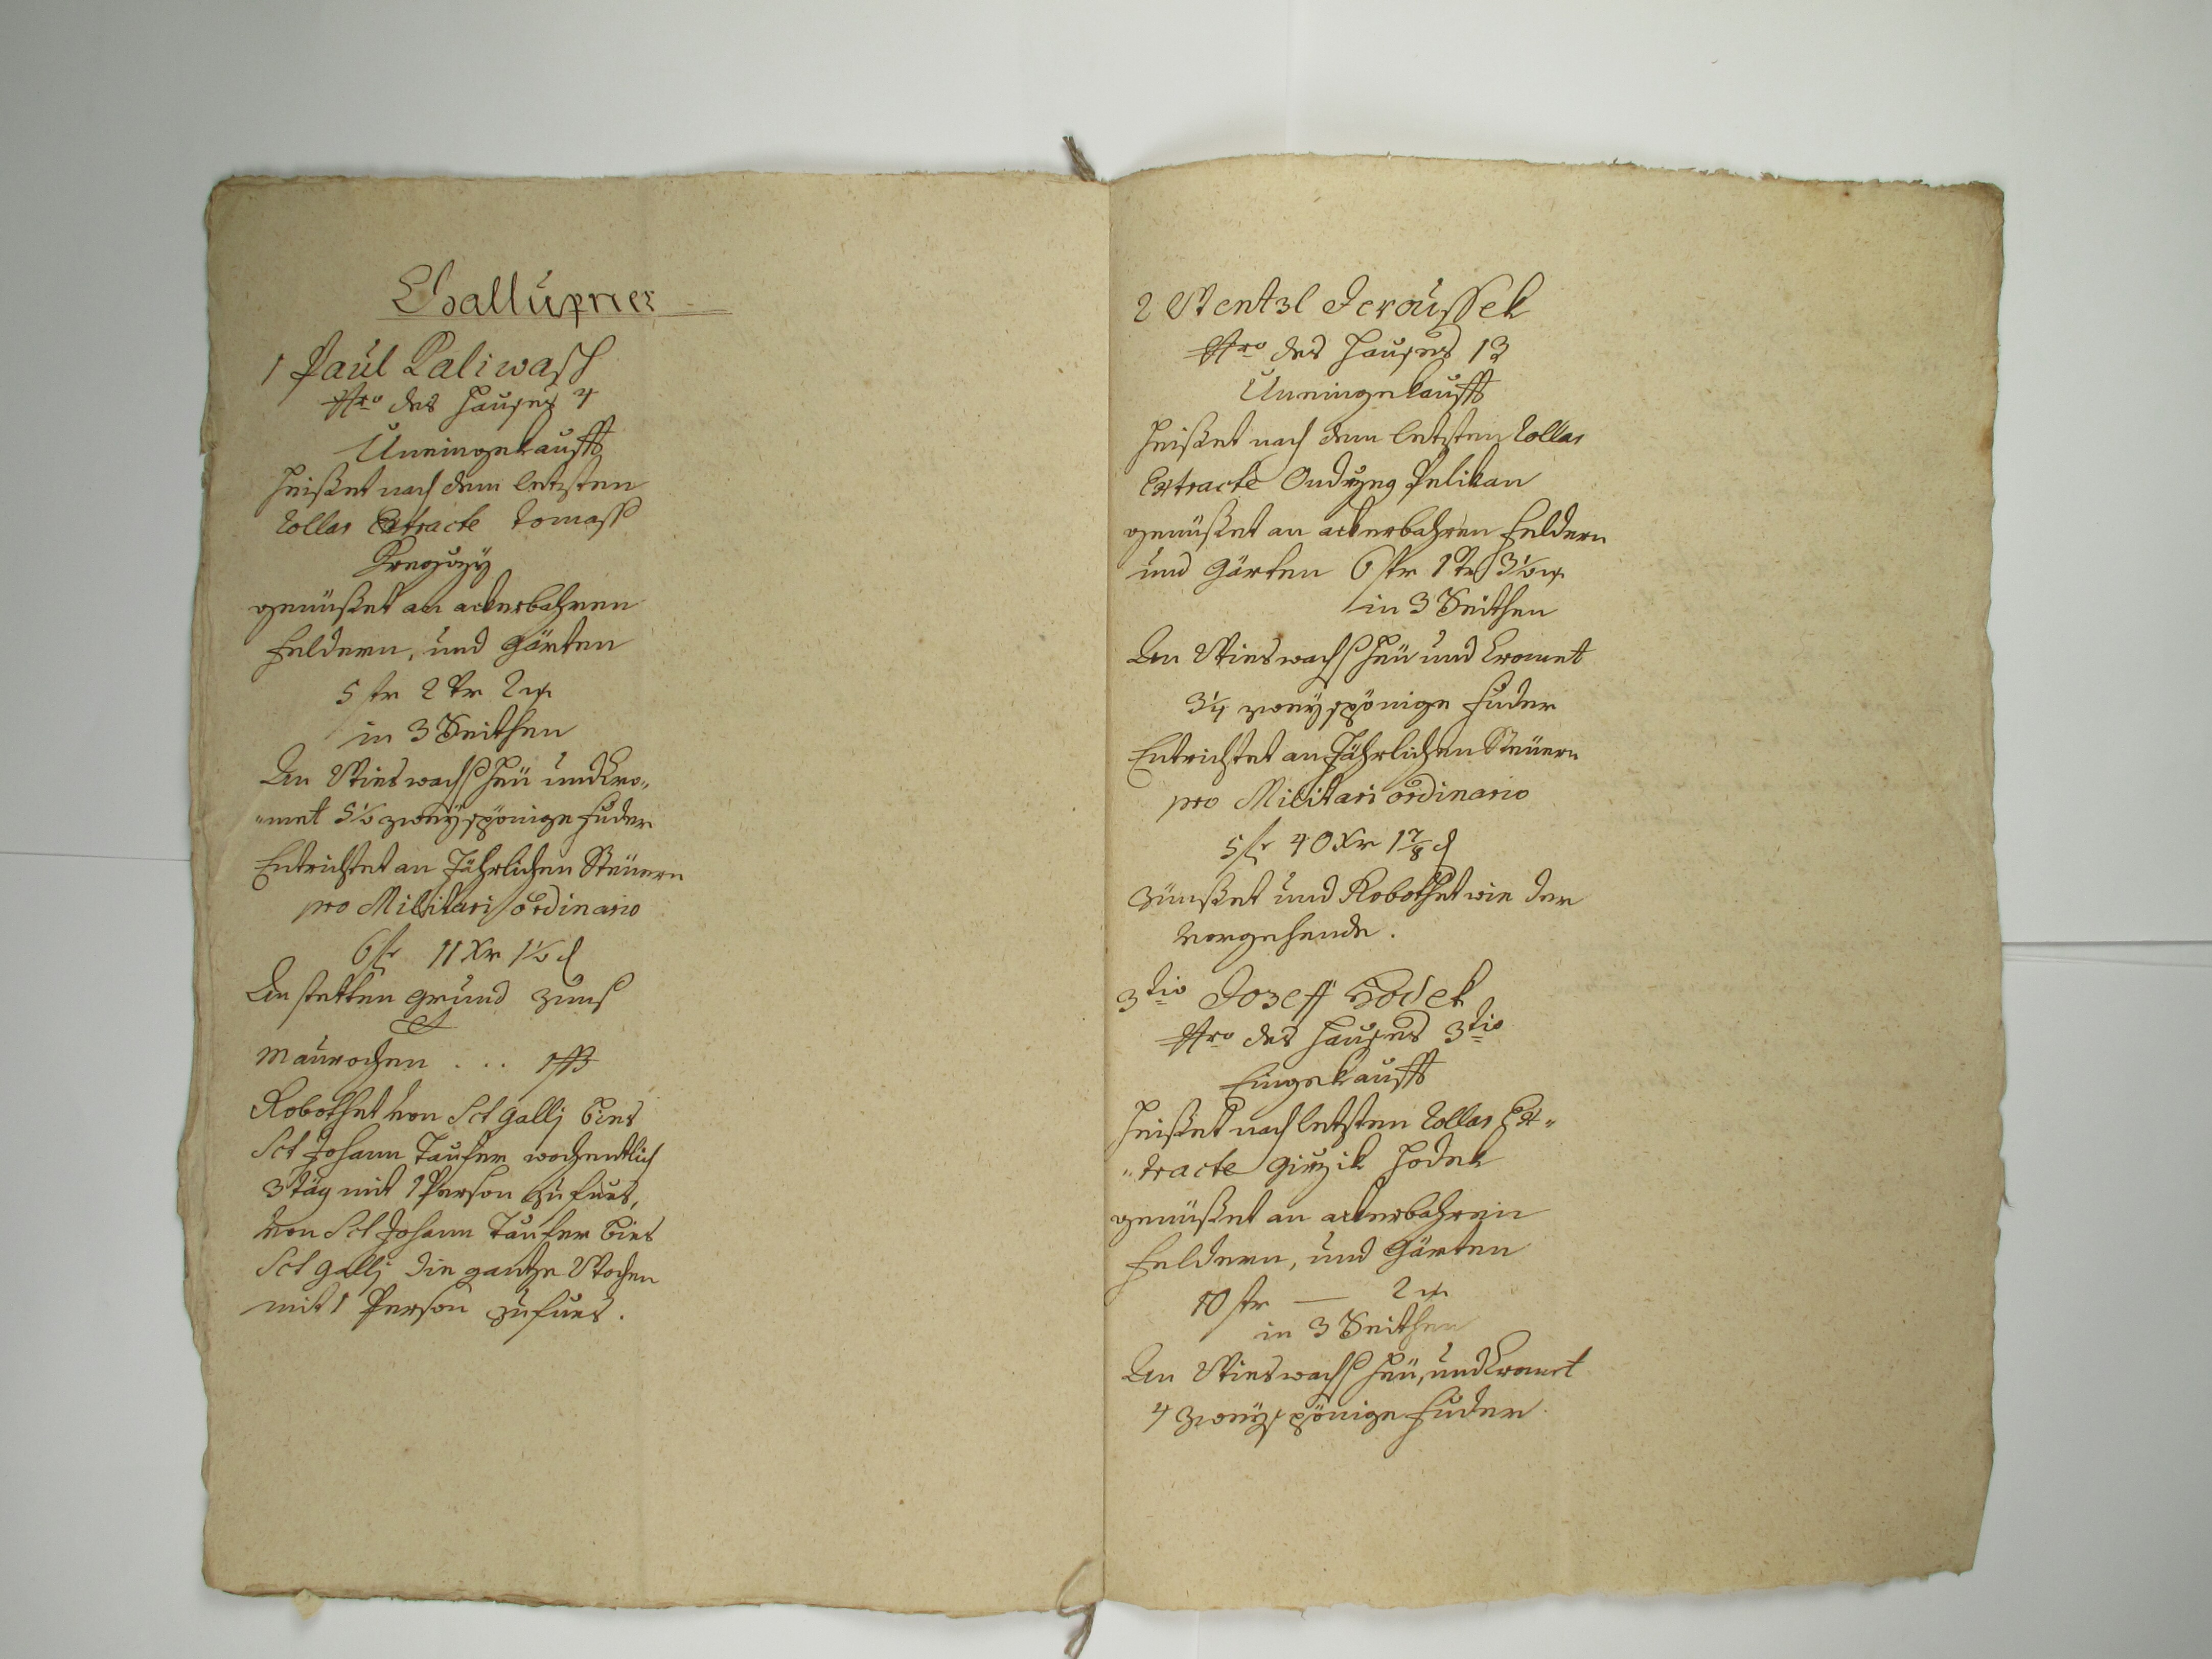 Challupner
1 Paul Paliwaß
Nro des Hauses 4
Uneingekaufft
heißet nach dem letzten
Rollar Extracte Tomaß
Krzeguzy
genüßet an ackerbahren
Feldern, und Gärten
5 str 2 Vr 2
in 3 Seithen
An Wieswachß Heü und Gro„
„met 5½ zweyspönige Fuder
Entrichtet an Jährlichen Steüern
pro Militari ordinario
6 fr 11 Xr 1½ d
An stetten grund zünß
et
Maurochen . . . 1 ß
Robothet von Sct Gallj bies
Sct Johann Taufer wochentlich
3 täg mit 1 Person zu fues,
von Sct Johann Taufer bies
Sct Gallj die gantze Wochen
mit 1 Person zu fues.
2 Wentzl Jeroussek
Nro des Hauses 13
Uneingekaufft
heißet nach dem letzten Rollar
Extracte Ondrzeg Pelikan
genüßet an ackerbahren Feldern
und Gärten 6 str 1 Vr 3½
in 3 Seithen
An Wieswachß Heü und Gromet
3¼ zweyspönige Fuder
Entrichtet an Jährlichen Steüern
pro Militari ordinario
5 fr 40 Xr 1⅞ d
Zünßet und Robothet wie der
Vorgehende.
3tio Joseff Hodek
Nro des Hauses 3tio
Eingekaufft
heißet nach letzten Rollar Ex„
„tracte Girzik Hodek
genüßet an ackerbahren
Feldern, und Gärten
10 str — 2
in 3 Seithen
An Wieswachß Heü, und Gromet
4 zweyspönige Fuder.